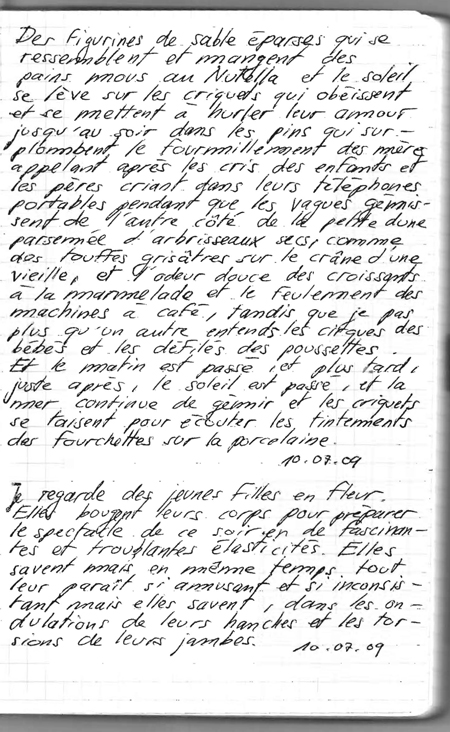 Des figurines de sable éparses qui se
ressemblent et mangent des
pains mous au Nutella et le soleil
se lève sur les criquets qui obéissent
et se mettent à hurler leur amour
jusqu'au soir dans les pins qui sur-
plombent le fourmillement des mères
appelant après les cris des enfants et
les pères criant dans leurs téléphones
portables pendant que les vagues gémis-
sent de l'autre côté de la petite dune
parsemée d'arbrisseaux secs, comme
des touffes grisâtres sur le crâne d'une
vieille, et l'odeur douce des croissants
à la marmelade et le feulement des
machines à café, tandis que je pas
plus qu'un autre entends les cirques des
bébés et les défilés des poussettes.
Et le matin est passé, et plus tard,
juste après, le soleil est passé, et la
mer continue de gémir et les criquets
se taisent pour écouter les tintements
des fourchettes sur la porcelaine.
10.07.09
Je regarde des jeunes filles en fleur.
Elles bougent leurs corps pour préparer
le spectacle de ce soir en de fascinan-
tes et troublantes élasticités. Elles
savent mais en même temps tout
leur paraît si amusant et si inconsis-
tant mais elles savent, dans les on-
dulations de leurs hanches et les tor-
sions de leurs jambes.
10.07.09